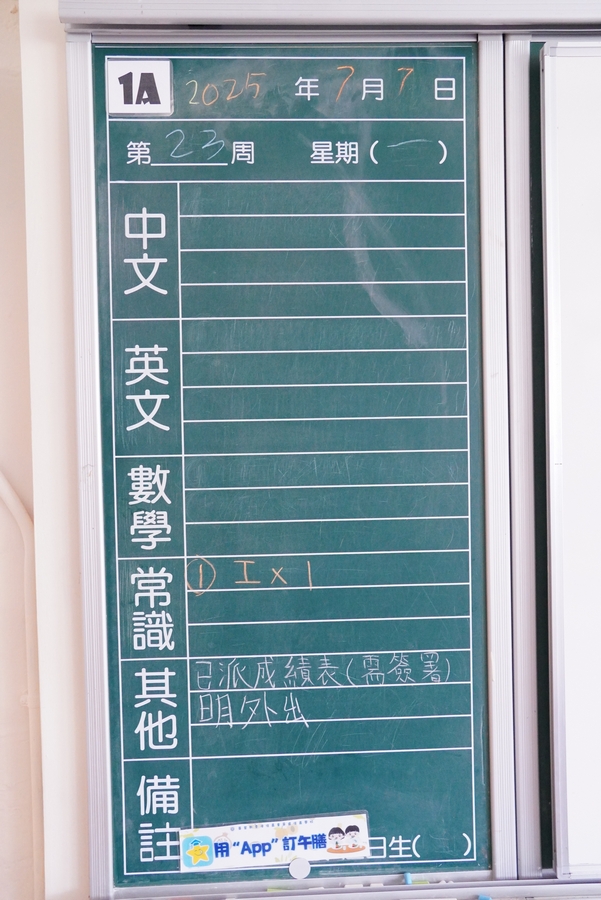 1A 2025 年 7 月 7 日
第 23 周 星期 ( 一 )
中文
英文
數學
常識 ① 工 x 1
其他 已派成績表(需簽署)
明外出
備註
用 “App” 訂午膳
日生( )